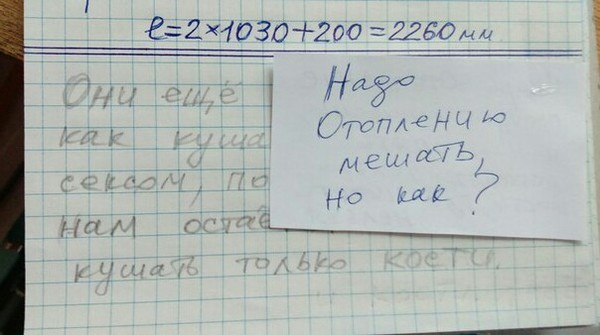 l=2×1030+200=2260мм
Они ещё
как куша
сексом, по
нам остав
кушать только кости.
Надо
Отоплению
мешать,
но как?